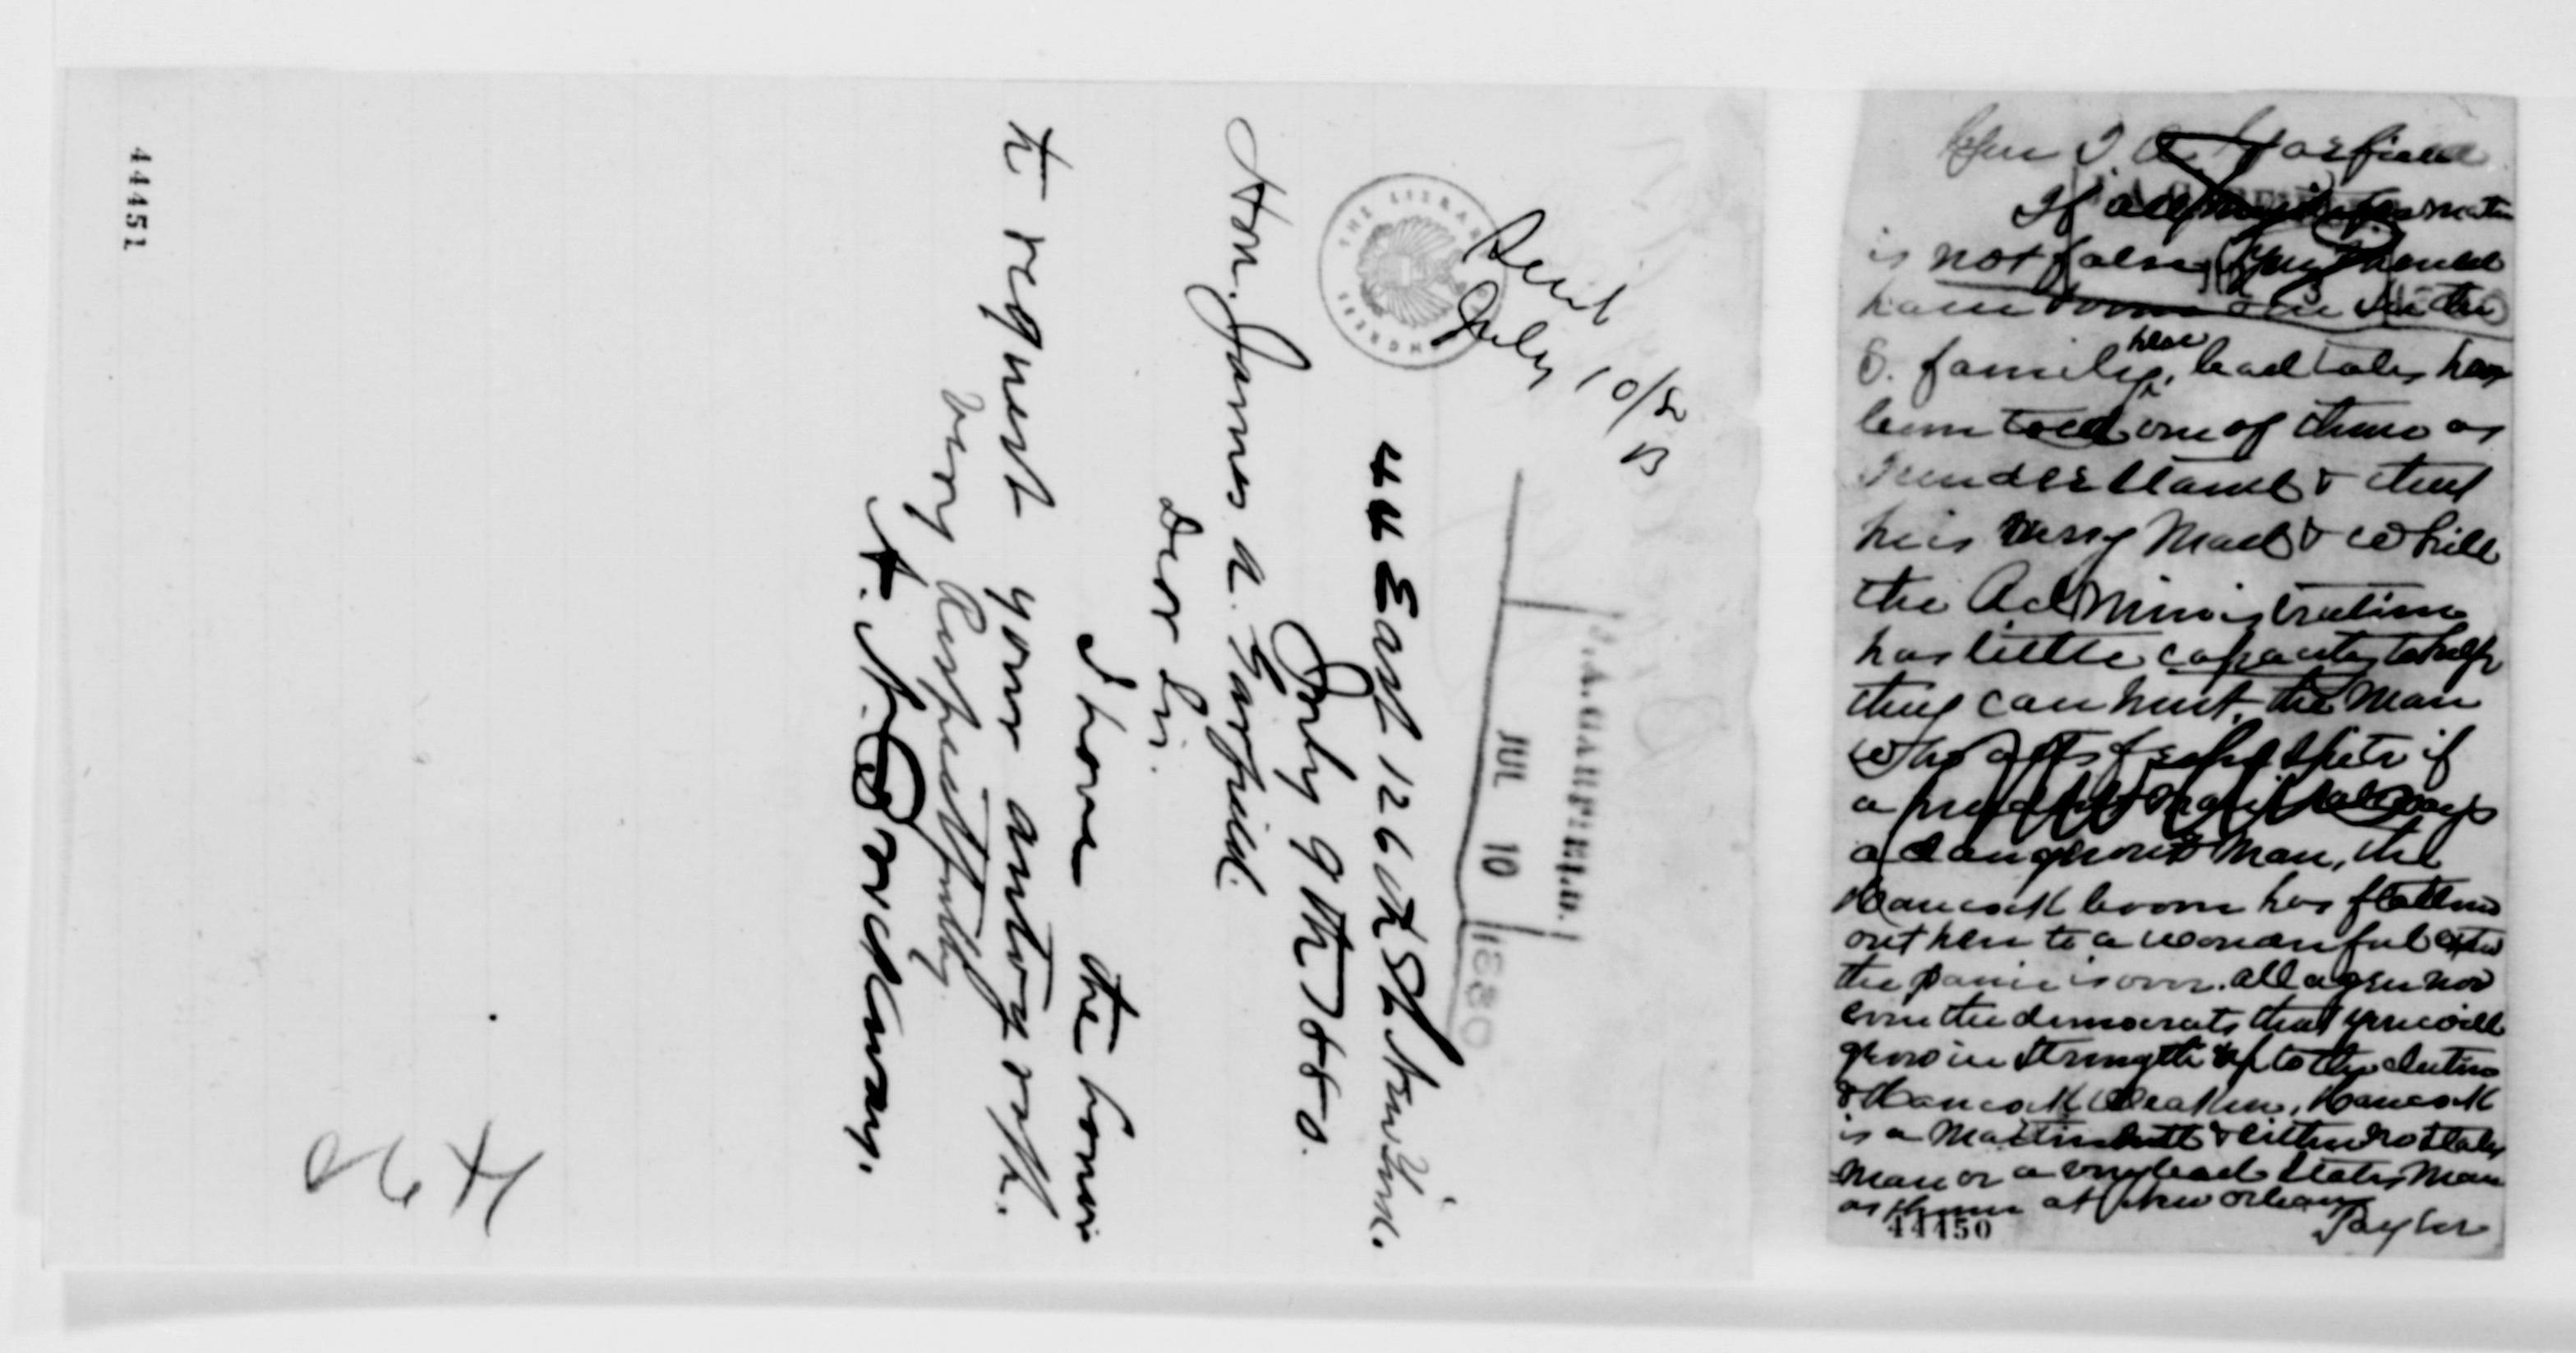 44451
Sent
July 10/80
B
THE LIBRARY CONGRESS
J. A. GARFIELD.
JUL 10 1880
44 East 126th St. New York.
July 9th 1880.
Hon. James A. Garfield.
Dear Sir.
I have the honor
to request your autograph.
Very Respectfully
A. N. Brockway.
Gen J. A. Garfield
If all my information
is not false, you should
have
S. family, here bad tales have
been told one of them as
I understand & that
he is very mad & while
the Administration
has little capacity to help
they can hurt, the man
who if
a always
a dangerous man, the
Hancock boom has flattened
out here to a wonderful
the panic is over. all agree now
even the democrats that you will
grow in strength up to the election
& Hancock weaken, Hancock
is a & either no states
man or a very bad States man
as shown at New Orleans
Taylor
44450